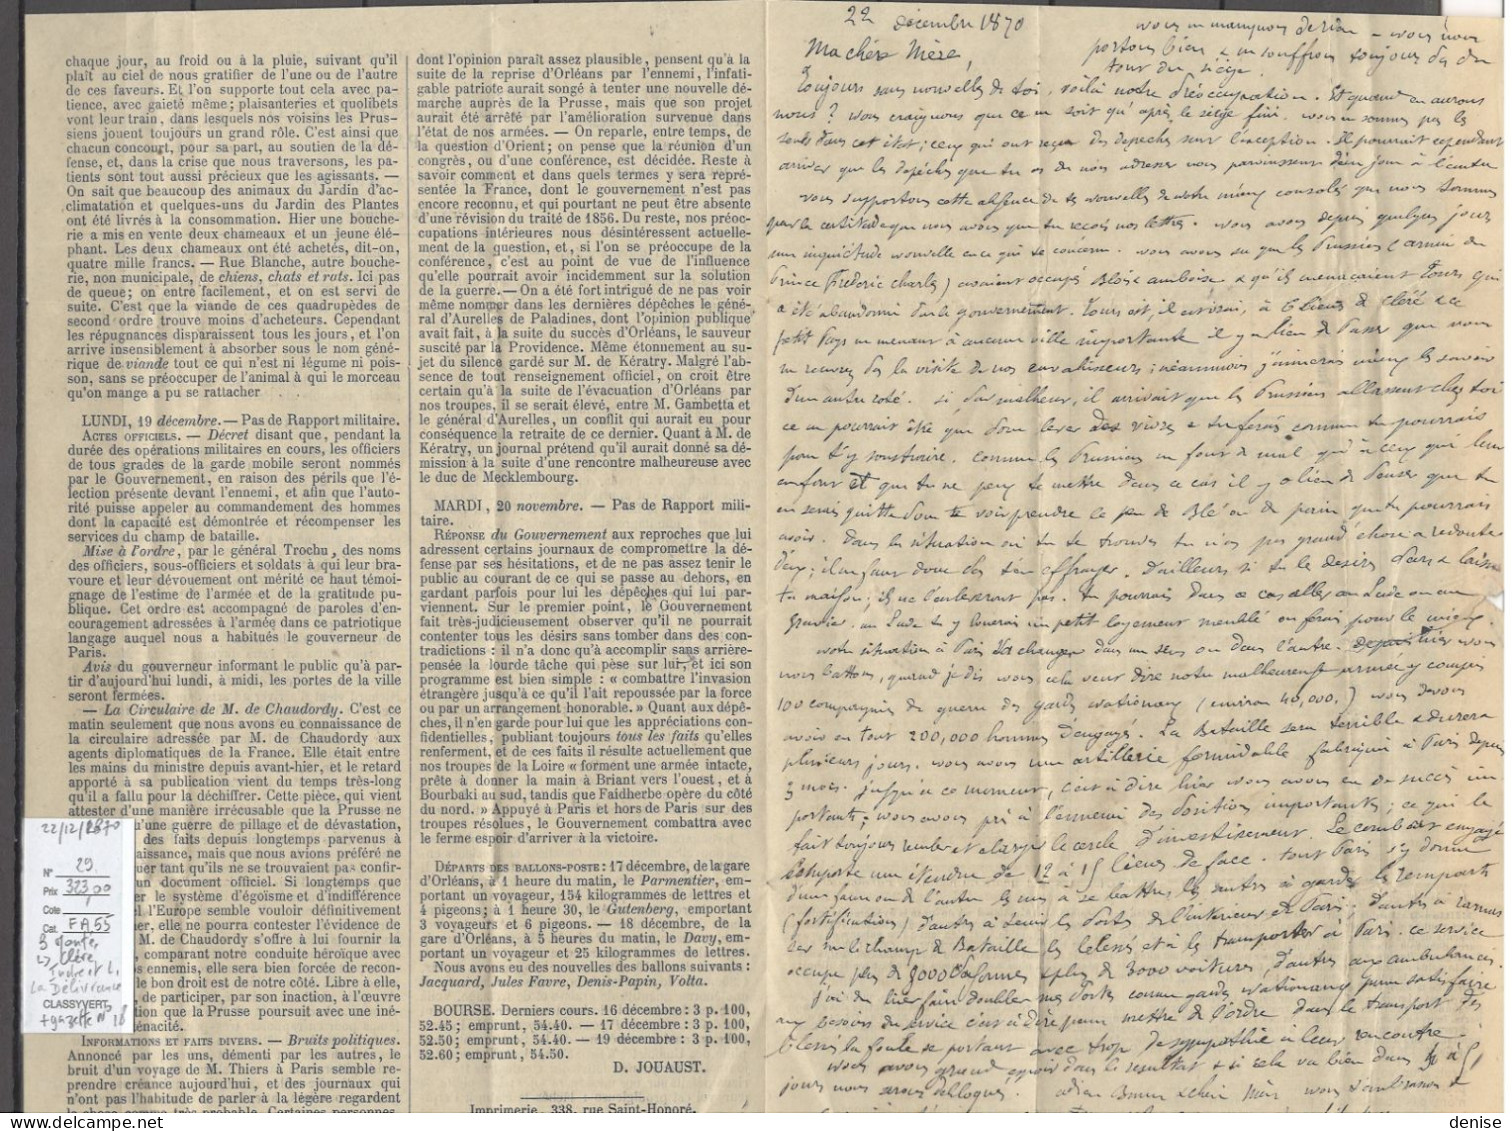 chaque jour, au froid ou à la pluie, suivant qu'il
plaît au ciel de nous gratifier de l'une ou de l'autre
de ces faveurs. Et l'on supporte tout cela avec pa-
tience, avec gaieté même; plaisanteries et quolibets
vont leur train, dans lesquels nos voisins les Prus-
siens jouent toujours un grand rôle. C'est ainsi que
chacun concourt, pour sa part, au soutien de la dé-
fense, et, dans la crise que nous traversons, les pa-
tients sont tout aussi précieux que les agissants. —
On sait que beaucoup des animaux du Jardin d'ac-
climatation et quelques-uns du Jardin des Plantes
ont été livrés à la consommation. Hier une bouche-
rie a mis en vente deux chameaux et un jeune élé-
phant. Les deux chameaux ont été achetés, dit-on,
quatre mille francs. — Rue Blanche, autre bouche-
rie, non municipale, de chiens, chats et rats. Ici pas
de queue; on entre facilement, et on est servi de
suite. C'est que la viande de ces quadrupèdes de
second ordre trouve moins d'acheteurs. Cependant
les répugnances disparaissent tous les jours, et l'on
arrive insensiblement à absorber sous le nom géné-
rique de viande tout ce qui n'est ni légume ni pois-
son, sans se préoccuper de l'animal à qui le morceau
qu'on mange a pu se rattacher
LUNDI, 19 décembre. — Pas de Rapport militaire.
ACTES OFFICIELS. — Décret disant que, pendant la
durée des opérations militaires en cours, les officiers
de tous grades de la garde mobile seront nommés
par le Gouvernement, en raison des périls que l'é-
lection présente devant l'ennemi, et afin que l'auto-
rité puisse appeler au commandement des hommes
dont la capacité est démontrée et récompenser les
services du champ de bataille.
Mise à l'ordre, par le général Trochu, des noms
des officiers, sous-officiers et soldats à qui leur bra-
voure et leur dévouement ont mérité ce haut témoi-
gnage de l'estime de l'armée et de la gratitude pu-
blique. Cet ordre est accompagné de paroles d'en-
couragement adressées à l'armée dans ce patriotique
langage auquel nous a habitués le gouverneur de
Paris.
Avis du gouverneur informant le public qu'à par-
tir d'aujourd'hui lundi, à midi, les portes de la ville
seront fermées.
— La Circulaire de M. de Chaudordy. C'est ce
matin seulement que nous avons eu connaissance de
la circulaire adressée par M. de Chaudordy aux
agents diplomatiques de la France. Elle était entre
les mains du ministre depuis avant-hier, et le retard
apporté à sa publication vient du temps très-long
qu'il a fallu pour la déchiffrer. Cette pièce, qui vient
attester d'une manière irrécusable que la Prusse ne
'une guerre de pillage et de dévastation,
des faits depuis longtemps parvenus à
aissance, mais que nous avions préféré ne
quer tant qu'ils ne se trouvaient pas confir-
un document officiel. Si longtemps que
er le système d'égoïsme et d'indifférence
el l'Europe semble vouloir définitivement
her, elle ne pourra contester l'évidence de
M. de Chaudordy s'offre à lui fournir la
comparant notre conduite héroïque avec
os ennemis, elle sera bien forcée de recon-
le bon droit est de notre côté. Libre à elle,
de participer, par son inaction, à l'œuvre
tion que la Prusse poursuit avec une iné-
énacité.
INFORMATIONS ET FAITS DIVERS. — Bruits politiques.
Annoncé par les uns, démenti par les autres, le
bruit d'un voyage de M. Thiers à Paris semble re-
prendre créance aujourd'hui, et des journaux qui
n'ont pas l'habitude de parler à la légère regardent
la chose comme très probable. Certaines personnes,
dont l'opinion paraît assez plausible, pensent qu'à la
suite de la reprise d'Orléans par l'ennemi, l'infati-
gable patriote aurait songé à tenter une nouvelle dé-
marche auprès de la Prusse, mais que son projet
aurait été arrêté par l'amélioration survenue dans
l'état de nos armées. — On reparle, entre temps, de
la question d'Orient; on pense que la réunion d'un
congrès, ou d'une conférence, est décidée. Reste à
savoir comment et dans quels termes y sera repré-
sentée la France, dont le gouvernement n'est pas
encore reconnu, et qui pourtant ne peut être absente
d'une révision du traité de 1856. Du reste, nos préoc-
cupations intérieures nous désintéressent actuelle-
ment de la question, et, si l'on se préoccupe de la
conférence, c'est au point de vue de l'influence
qu'elle pourrait avoir incidemment sur la solution
de la guerre. — On a été fort intrigué de ne pas voir
même nommer dans les dernières dépêches le géné-
ral d'Aurelles de Paladines, dont l'opinion publique
avait fait, à la suite du succès d'Orléans, le sauveur
suscité par la Providence. Même étonnement au su-
jet du silence gardé sur M. de Kératry. Malgré l'ab-
sence de tout renseignement officiel, on croit être
certain qu'à la suite de l'évacuation d'Orléans par
nos troupes, il se serait élevé, entre M. Gambetta et
le général d'Aurelles, un conflit qui aurait eu pour
conséquence la retraite de ce dernier. Quant à M. de
Kératry, un journal prétend qu'il aurait donné sa dé-
mission à la suite d'une rencontre malheureuse avec
le duc de Mecklembourg.
MARDI, 20 novembre. — Pas de Rapport mili-
taire.
RÉPONSE du Gouvernement aux reproches que lui
adressent certains journaux de compromettre la dé-
fense par ses hésitations, et de ne pas assez tenir le
public au courant de ce qui se passe au dehors, en
gardant parfois pour lui les dépêches qui lui par-
viennent. Sur le premier point, le Gouvernement
fait très-judicieusement observer qu'il ne pourrait
contenter tous les désirs sans tomber dans des con-
tradictions : il n'a donc qu'à accomplir sans arrière-
pensée la lourde tâche qui pèse sur lui, et ici son
programme est bien simple : « combattre l'invasion
étrangère jusqu'à ce qu'il l'ait repoussée par la force
ou par un arrangement honorable. » Quant aux dépê-
ches, il n'en garde pour lui que les appréciations con-
fidentielles, publiant toujours tous les faits qu'elles
renferment, et de ces faits il résulte actuellement que
nos troupes de la Loire « forment une armée intacte,
prête à donner la main à Briant vers l'ouest, et à
Bourbaki au sud, tandis que Faidherbe opère du côté
du nord. » Appuyé à Paris et hors de Paris sur des
troupes résolues, le Gouvernement combattra avec
le ferme espoir d'arriver à la victoire.
DÉPARTS DES BALLONS-POSTE : 17 décembre, de la gare
d'Orléans, à 1 heure du matin, le Parmentier, em-
portant un voyageur, 154 kilogrammes de lettres et
4 pigeons; à 1 heure 30, le Gutenberg, emportant
3 voyageurs et 6 pigeons. — 18 décembre, de la
gare d'Orléans, à 5 heures du matin, le Davy, em-
portant un voyageur et 25 kilogrammes de lettres.
Nous avons eu des nouvelles des ballons suivants :
Jacquard, Jules Favre, Denis-Papin, Volta.
BOURSE. Derniers cours. 16 décembre : 3 p. 100,
52.45; emprunt, 54.40. — 17 décembre : 3 p. 100,
52.50; emprunt, 54.40. — 19 décembre : 3 p. 100,
52.60; emprunt, 54.50.
D. JOUAUST.
Imprimerie, 338, rue Saint-Honoré.
22 décembre 1870
Ma chère Mère,
portons bien
tour du siège.
Toujours sans nouvelles de toi, voilà notre préoccupation. Et quand en aurons
nous? nous craignons que ce ne soit qu'après le siège fini. nous ne sommes pas les
seuls dans cet état; ceux qui ont reçu des depeches sont l'exception. Il pourrait cependant
arriver que les depêches que tu as du nous adresser nous parvinssent d'un jour à l'autre
nous supportons cette absence de tes nouvelles de notre mieux consolés que nous sommes
par la certitude que nous avons que tu reçois nos lettres. nous avons depuis quelques jours
une inquiétude nouvelle en ce qui te concerne. nous avons su que les Prussiens (armée du
Prince Frederic charles) avaient occupés Blois & amboise & qu'ils menacaient Tours qui
a été abandonné par le gouvernement. Tours est, il est vrai, à 6 lieues de cléré & ce
petit pays ne menant à aucune ville importante il y a lieu de penser que vous
ne recevrez pas la visite de nos envahisseurs; néanmoins j'aimerais mieux les savoir
d'un autre coté. si par malheur, il arrivait que les Prussiens allassent chez toi
ce ne pourrait être que pour lever des vivres & tu ferais comme tu pourrais
pour t'y soustraire. comme les Prussiens ne font de mal qu'à ceux qui leur
en font et que tu ne peux te mettre dans ce cas il y a lieu de penser que tu
en serais quitte pour te voir prendre le peu de Blé ou de farine que tu pourrais
avoir. Dans la situation où tu te trouves tu n'as pas grand chose à redouter
d'eux; il ne faut donc pas t'en effrayer. D'ailleurs si tu le desires pars & laisse
ta maison; ils ne l'enleveront pas. Tu pourrais dans ce cas aller au Lude ou au
Gravier. au Lude tu y louerais un petit logement meublé ou ferais pour le mieux.
notre situation à Paris va changer dans un sens ou dans l'autre. nous
nous battons, quand je dis nous cela veut dire notre malheureuse armée y compris
100 compagnies de guerre des gardes nationaux (environ 40,000.) nous devons
avoir en tout 200,000 hommes d'engagés. La Bataille sera terrible & durera
plusieurs jours. nous avons une artillerie formidable fabriquée à Paris depuis
3 mois. jusqu'à ce moment, c'est à dire hier nous avons eu du succès im
portants; nous avons pris à l'ennemi des positions importantes; ce qui le
fait toujours reculer et élargir le cercle d'investissement. Le combat engagé
comporte une étendue de 12 à 15 lieues de face. tout Paris s'y donne
d'une façon ou de l'autre les uns à se battre, les autres à garder les remparts
(fortifications) d'autres à tenir les Postes de l'intérieur de Paris, d'autres à ramas
ser sur le champ de Bataille les blessés et à les transporter à Paris. ce service
occupe plus de 3000 personnes & plus de 3000 voitures, d'autres aux ambulances.
j'ai du hier faire doubler mes postes comme gardes nationaux pour satisfaire
aux besoins du service c'est à dire pour mettre de l'ordre dans le transport des
blessés la foule se portant avec trop de sympathie à leur rencontre.
nous avons grand espoir dans le resultat & si cela va bien dans 4 à 5
jours nous serons débloqués. adieu Bonne & chère Mère nous t'embrassons &
22/12/1870
N° 29
Prix 323,00
Cote
Cat. FA55
3
-> Cléré
Indre et L.
La Délivrance
CLASSYVERT
+ gazette n° 18
denise